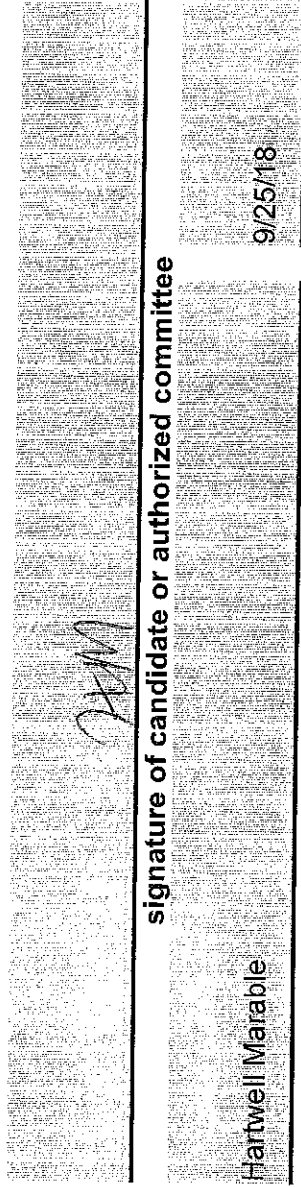 signature of candidate or authorized committee
Hartwell Marable 9/25/18